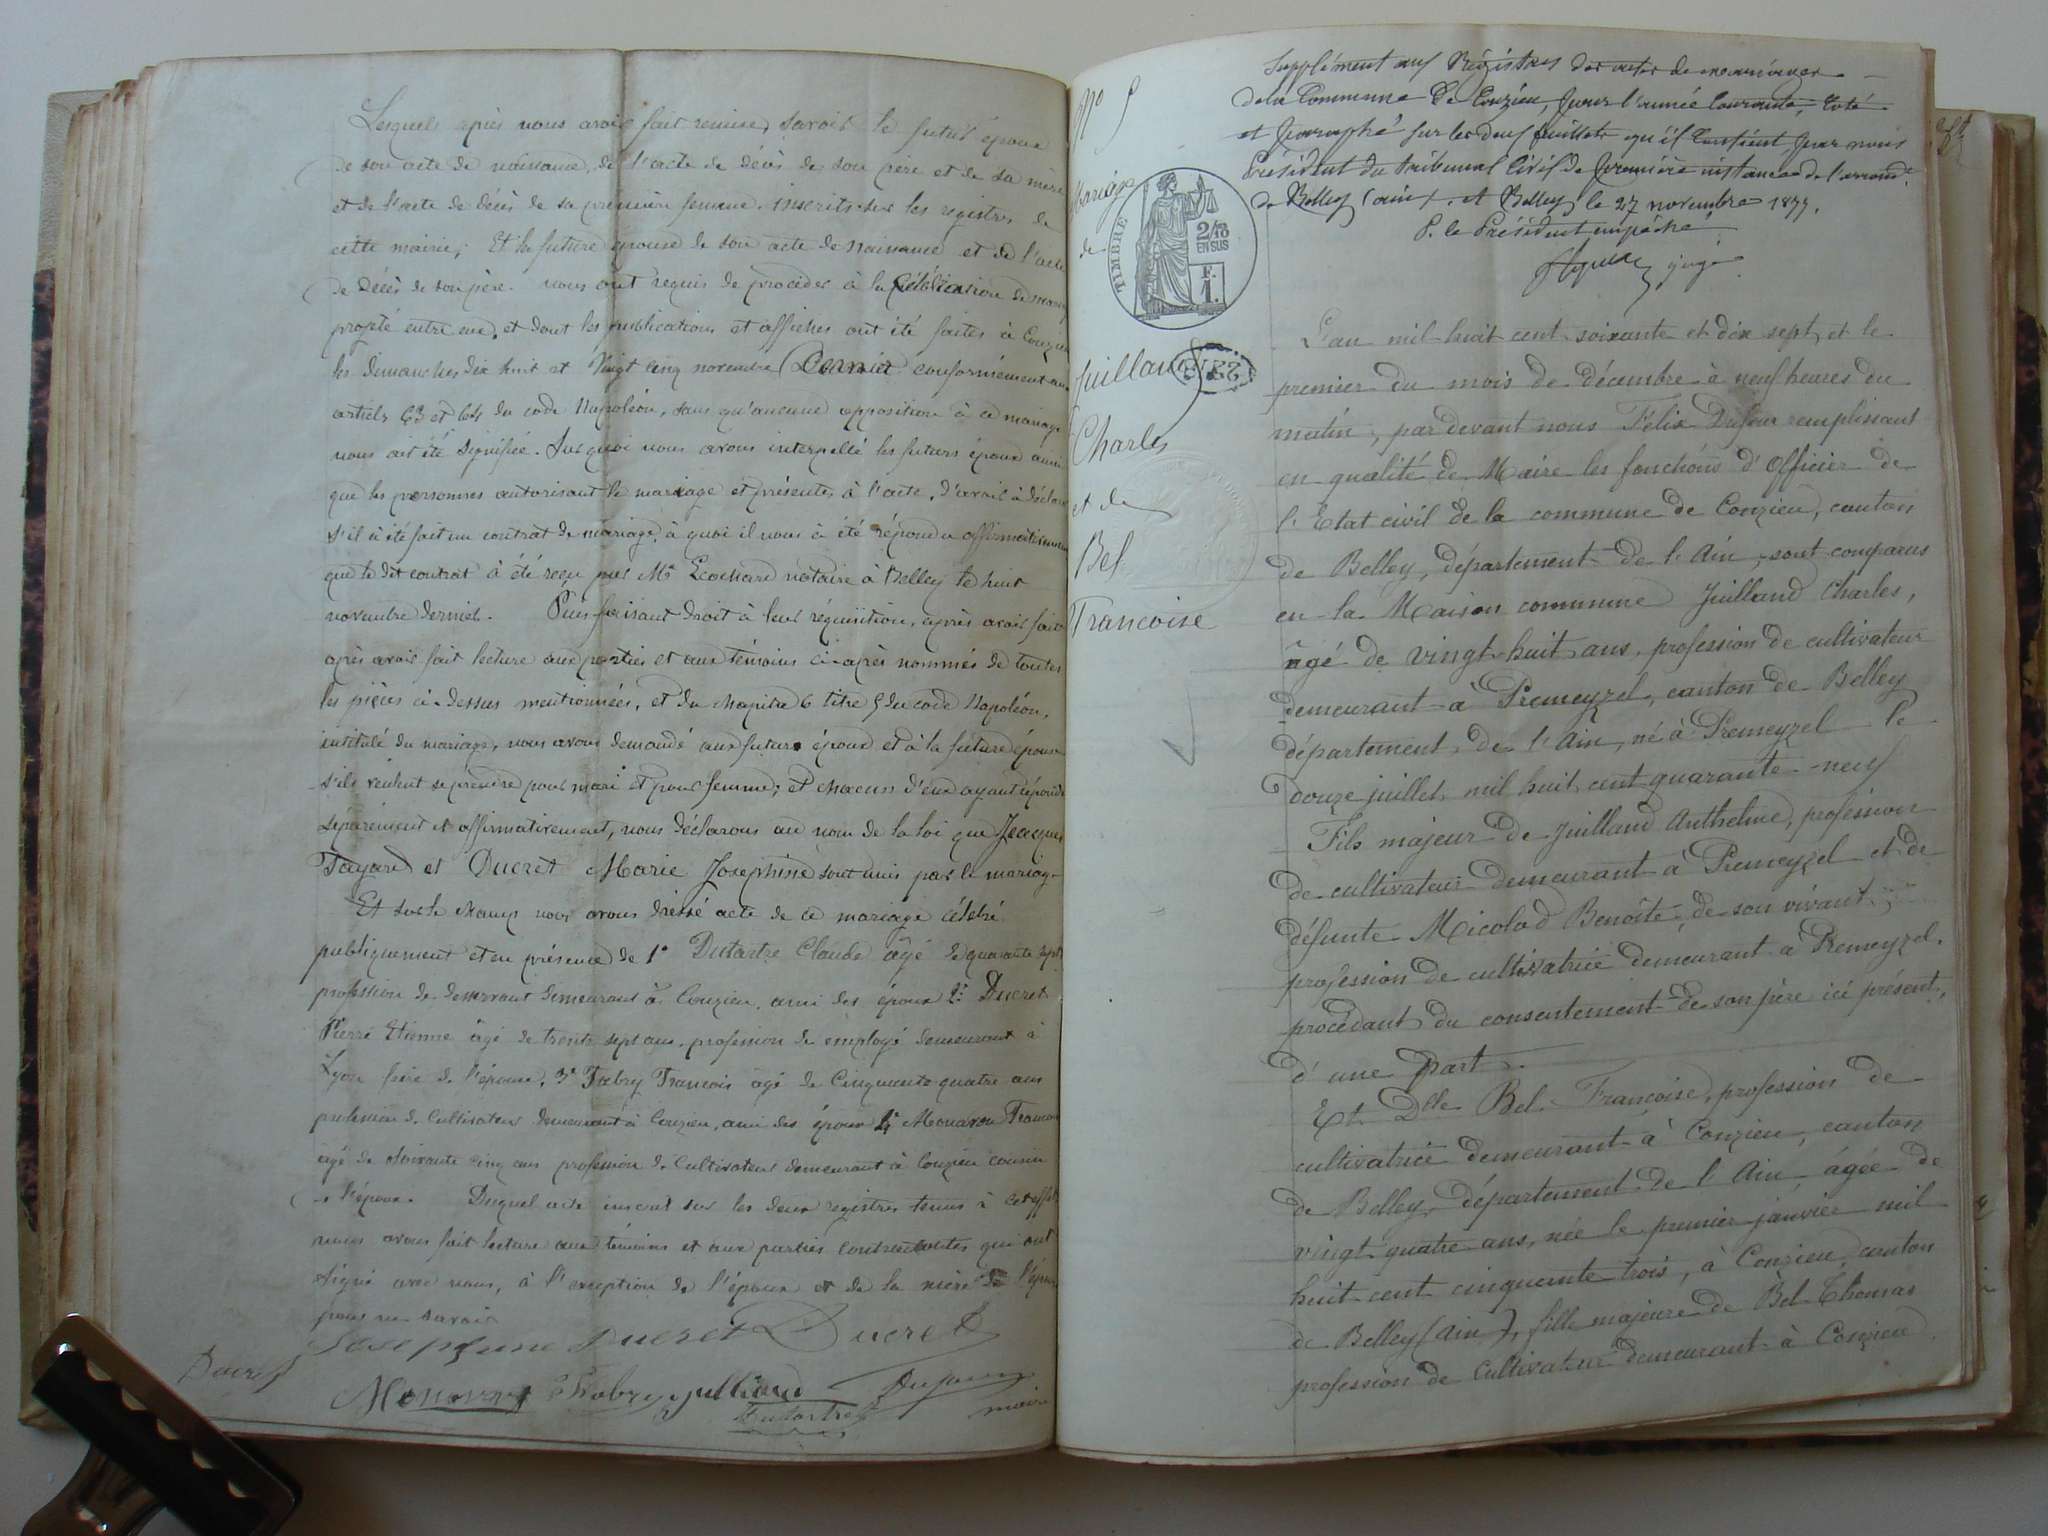 Lesquels après nous avoir fait remise, savoir le futur époux
de son acte de naissance, de l'acte de décès de son père et de sa mère
et de l'acte de décès de sa première femme. inscrits sur les registres de
cette mairie; Et la future épouse de son acte de naissance et de l'acte
de décès de son père. nous ont requis de procéder à la célébration du mariage
projeté entre eux, et dont les publications et affiches ont été faites à Conzieu
les dimanches dix huit et Vingt cinq novembre Dernier conformément aux
articles 63 et 64 du code Napoléon, sans qu'aucune opposition à ce mariage
nous ait été signifiée. Sur quoi nous avons interpellé les futurs époux ainsi
que les personnes autorisant le mariage et présentes à l'acte, d'avoir à déclarer
s'il a été fait un contrat de mariage, à quoi il nous a été répondu affirmativement
que le dit contrat à été reçu par Me notaire à Belley le huit
novembre dernier. Puis faisant droit à leur réquisition, après avoir fait
après avoir fait lecture aux parties et aux témoins ci-après nommés de toutes
les pièces ci-dessus mentionnées, et du chapitre 6 titre 5 du code Napoléon,
intitulé du mariage, nous avons demandé aux futurs époux et à la future épouse
s'ils veulent se prendre pour mari et pour femme; et chacun d'eux ayant répondu
séparément et affirmativement, nous déclarons au nom de la loi que Jacques
Tayard et Ducret Marie Josephine sont unis par le mariage
Et sur le champ nous avons dressé acte de ce mariage célébré
publiquement et en présence de 1° Dutartre Claude âgé de quarante sept
profession de desservant demeurant à Conzieu, ami des époux 2° Ducret
Pierre Etienne âgé de trente sept ans, profession de employé demeurant à
Lyon frère de l'épouse, 3° Fabry Francois âgé de Cinquante quatre ans
profession de Cultivateur demeurant à Conzieu, ami des époux 4° Monavon Francois
âgé de soixante cinq ans profession de Cultivateur demeurant à Conzieu cousin
l'époux. Duquel acte inscrit sur les deux registres tenus à cet effet
nous avons fait lecture aux témoins et aux parties contractantes qui ont
signé avec nous, à l'exception de l'époux et de la mère de l'épouse
pour ne savoir
Josephine Ducret Ducret
Ducret
Monavon Fabry Julliand Dufour
Dutartre maire
No 5
Mariage
de
Juilland
Charles
et de
Bel
Francoise
TIMBRE
2/10
EN SUS
F.
1.
Supplément aux Régistres des actes de mariages
de la Commune de Conzieu, pour l'année Courante, Coté
et paraphé sur les deux feuillets qu'il Contient par nous
Président du tribunal Civil de première instance de l'arrondt
de Belley (ain). et Belley le 27 novembre 1877.
P. le Président empêché
juge
L'an mil huit cent soixante et dix sept et le
premier du mois de décembre à neuf heures du
matin, par devant nous Félix Dufour remplissant
en qualité de Maire les fonctions d'Officier de
l'Etat civil de la commune de Conzieu, canton
de Belley, département de l'Ain, sont comparus
en la Maison commune Juilland Charles,
âgé de vingt-huit ans, profession de cultivateur
demeurant à Premeyzel, canton de Belley
département de l'Ain, né à Premeyzel le
douze juillet mil huit cent quarante-neuf
Fils majeur de Juilland Anthelme, profession
de cultivateur demeurant à Premeyzel et de
défunte Micolod Benoîte, de son vivant
profession de cultivatrice demeurant à Premeyzel.
procédant du consentement de son père ici présent,
d'une part.
Et Dlle Bel Francoise, profession de
cultivatrice demeurant à Conzieu, canton
de Belley, département de l'Ain âgée de
vingt-quatre ans, née le premier janvier mil
huit cent cinquante trois, à Conzieu, canton
de Belley (Ain), fille majeure de Bel Thomas
profession de Cultivateur demeurant à Conzieu